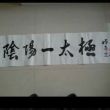 陰陽一太極